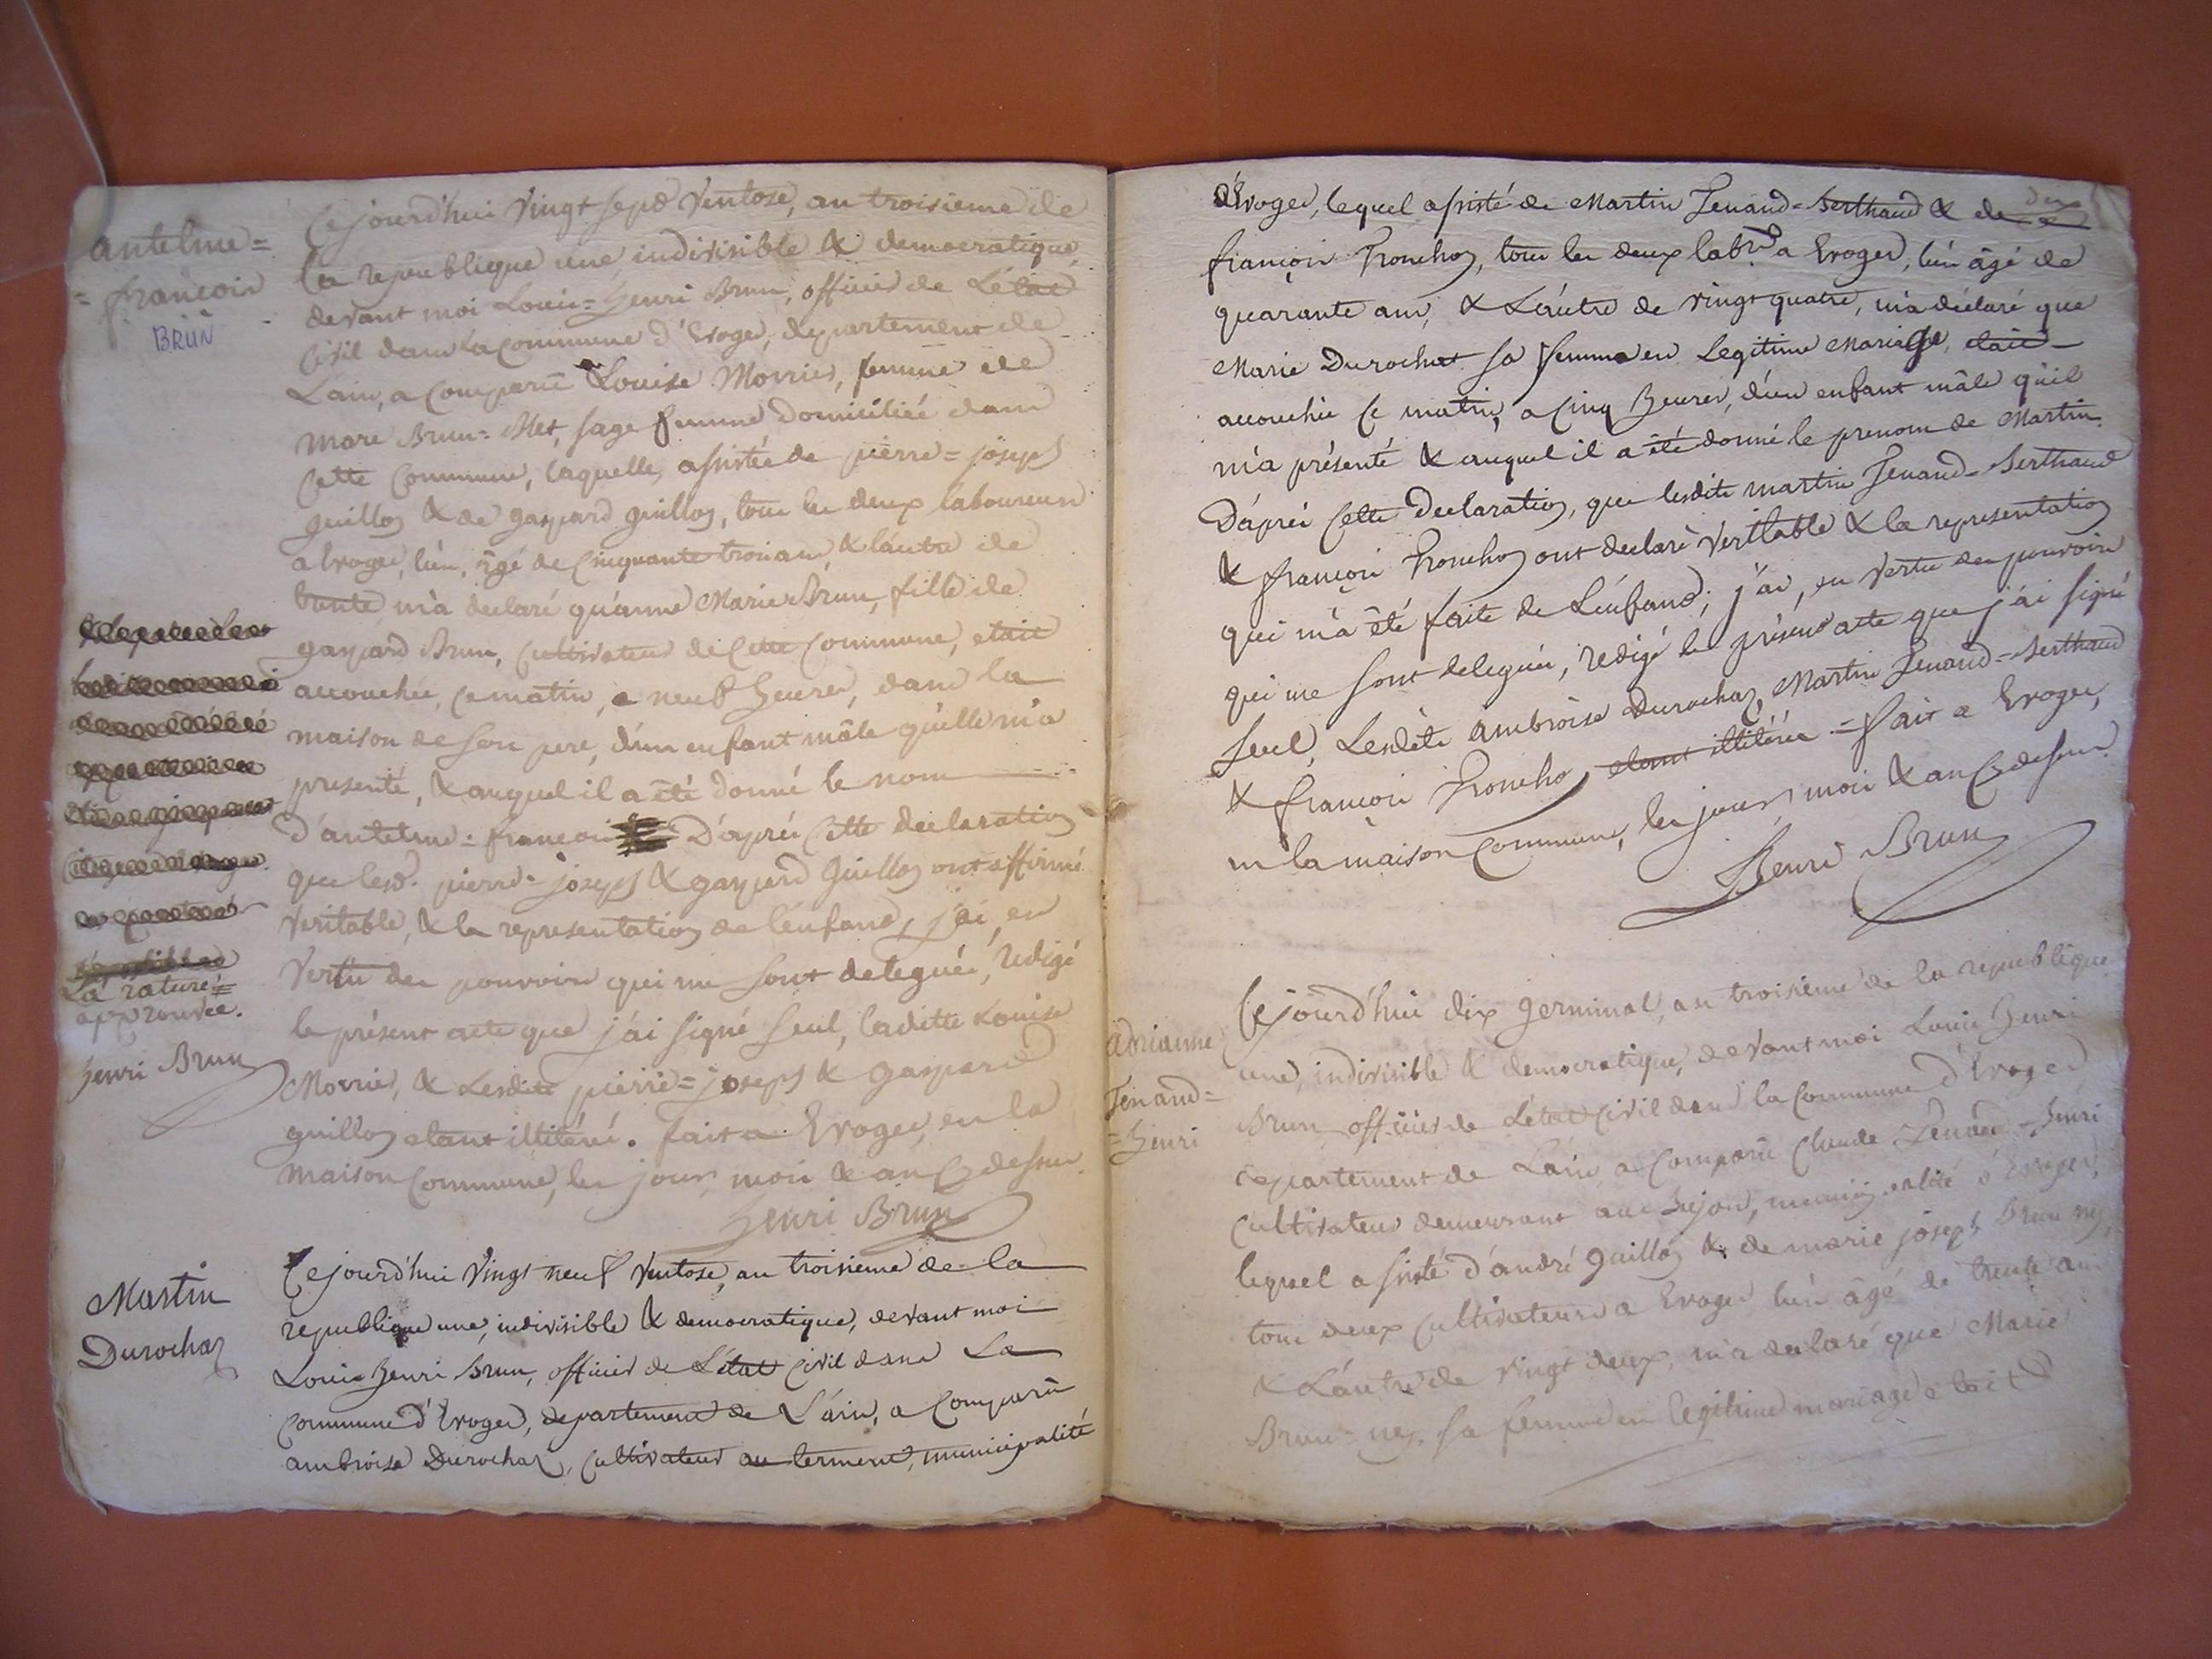 antelme=
=françois
BRUN
Cejourd'hui vingt sept ventose, an troisieme de
la republique une, indivisible & democratique,
devant moi Louis=henri Brun, officier de L'état
Civil dans la commune d'Evoges, departement de
L'ain, a comparu Louise Morrier, femme de
marc Brun=, sage femme domiciliée dans
cette commune, laquelle, assistée de pierre=joseph
guillon & de gaspard guillon, tous les deux laboureurs
a Evoges, l'un, âgé de cinquante trois ans, & l'autre de
trente, m'a declaré qu'anne Marie Brun, fille de
gaspard Brun, cultivateur de cette commune, etait
accouchée, ce matin, a neuf heures, dans la
maison de son pere, d'un enfant mâle qu'elle m'a
presenté, & auquel il a été donné le nom
d'antelme=françois D'après cette declaration
que lesd. pierre=joseph & gaspard guillon ont affirmé
veritable, & la representation de l'enfant, j'ai, en
vertu des pouvoirs qui me sont delegués, redigé
le présent acte que j'ai signé seul, laditte Louise
Morrier, & Lesdits pierre=joseph & gaspard
guillon etant illitérés. fait a Evoges, en la
maison commune, les jour, mois & an ci dessus.
henri Brun
La rature=
approuvée.
henri Brun
Martin
Durochaz
Cejourd'hui vingt neuf ventose, an troisieme de la
republique une, indivisible & democratique, devant moi
Louis henri Brun, officier de L'état civil dans La
commune d'Evoges, departement de L'ain, a comparu
ambroise Durochaz, cultivateur au terment, municipalité
d'Evoges, lequel assisté de Martin Tenand=Berthaud & de
françois Tronchon, tous les deux labrs a Evoges, l'un âgé de
quarante ans, & L'autre de vingt quatre, m'a déclaré que
Marie Durochat sa femme en Legitime Mariage, etait
accouchée ce matin, a cinq heures, d'un enfant mâle qu'il
m'a présenté & auquel il a été donné le prenom de Martin.
D'après cette Declaration, que lesdits martin Tenand=Berthaud
& françois Tronchon ont declaré veritable & la representation
qui m'a été faite de L'enfant; j'ai, en vertu des pouvoirs
qui me sont delegués, redigé le présent acte que j'ai signé
seul, Lesdits ambroise Durochaz, Martin Tenand=Berthaud
& françois Tronchon etant illitérés = fait a Evoges,
en la maison commune, les jour, mois & an ci dessus.
Henri Brun
adrianne
Tenand=
=henri
Cejourd'hui dix germinal, an troisieme de la republique
une, indivisible & democratique, devant moi Louis henri
Brun officier de L'état civil dans la commune d'Evoges
departement de L'ain, a comparu Claude Tenand=henri
cultivateur demeurant au, municipalité d'Evoges,
lequel assisté d'andré guillon & de marie joseph Brun ney,
tous deux cultivateurs a Evoges l'un âgé de trente ans
& L'autre de vingt deux, m'a declaré que Marie
Brun=ney, sa femme en legitime mariage etait